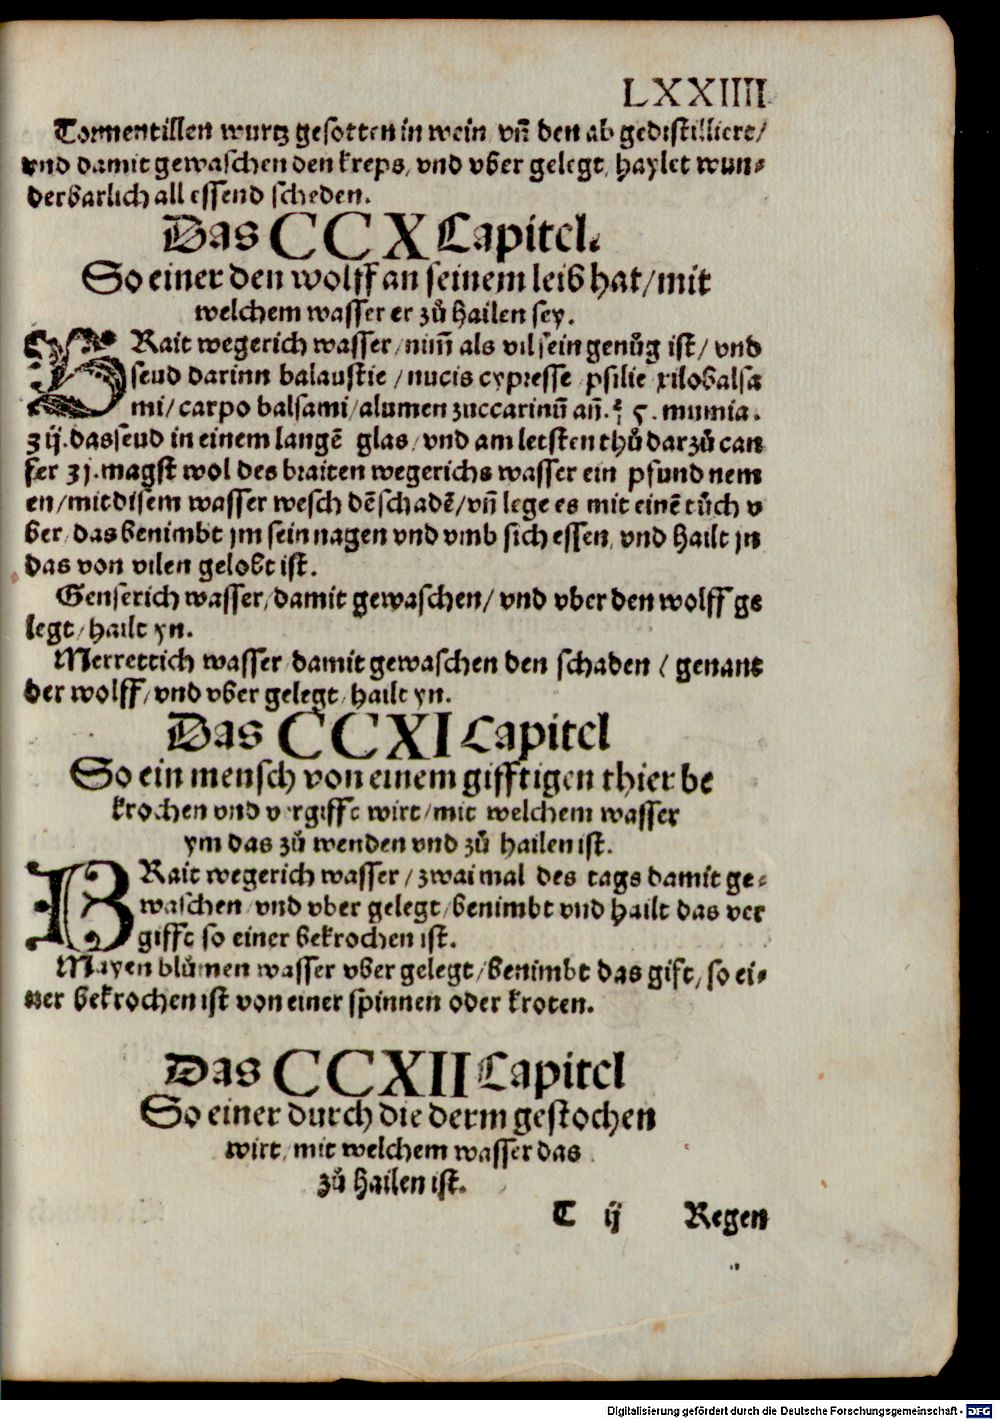 LXXIIII
Tormentillen wurtz gesotten in wein, vn̄ den ab gedistilliert/
vnd damit gewaschen den kreps, vnd vber gelegt, haylet wun⸗
derbarlich all essend scheden.
Das CCX Capitel.
So einer den wolff an seinem leib hat/mit
welchem wasser er zů hailen sey.
BRait wegerich wasser/nim̄ als vil sein genůg ist/ vnd
seud darinn balaustie /nucis cypresse psilie xilobalsa
mi/ carpo balsami/alumen zuccarinū an̄. ʒ 5. mumia.
ʒ ij. das seud in einem langē glas/vnd am letsten thů darzů can
fer ʒ j. magst wol des braiten wegerichs wasser ein pfund nem
en/mit disem wasser wesch dē schadē/vn̄ lege es mit einē tůch v
ber, das benimbt jm sein nagen vnd vmb sich essen, vnd hailt jn
das von vilen gelobt ist.
Genserich wasser/damit gewaschen/ vnd vber den wolff ge
legt/hailt yn.
Merrettich wasser/damit gewaschen den schaden / genant
der wolff/vnd vber gelegt/hailt yn.
Das CCXI Capitel
So ein mensch von einem gifftigen thier be
krochen vnd vergifft wirt/mit welchem wasser
ym das zů wenden vnd zů hailen ist.
BRait wegerich wasser/zwaimal des tags damit ge⸗
waschen/vnd vber gelegt/benimbt vnd hailt das ver
gifft so einer bekrochen ist.
Mayen blůmen wasser vber gelegt/benimbt das gift, so ei⸗
ner bekrochen ist von einer spinnen oder kroten.
Das CCXII Capitel
So einer durch die derm gestochen
wirt/mit welchem wasser das
zů hailen ist.
T ij Regen
Digitalisierung gefördert durch die Deutsche Forschungsgemeinschaft - DFG